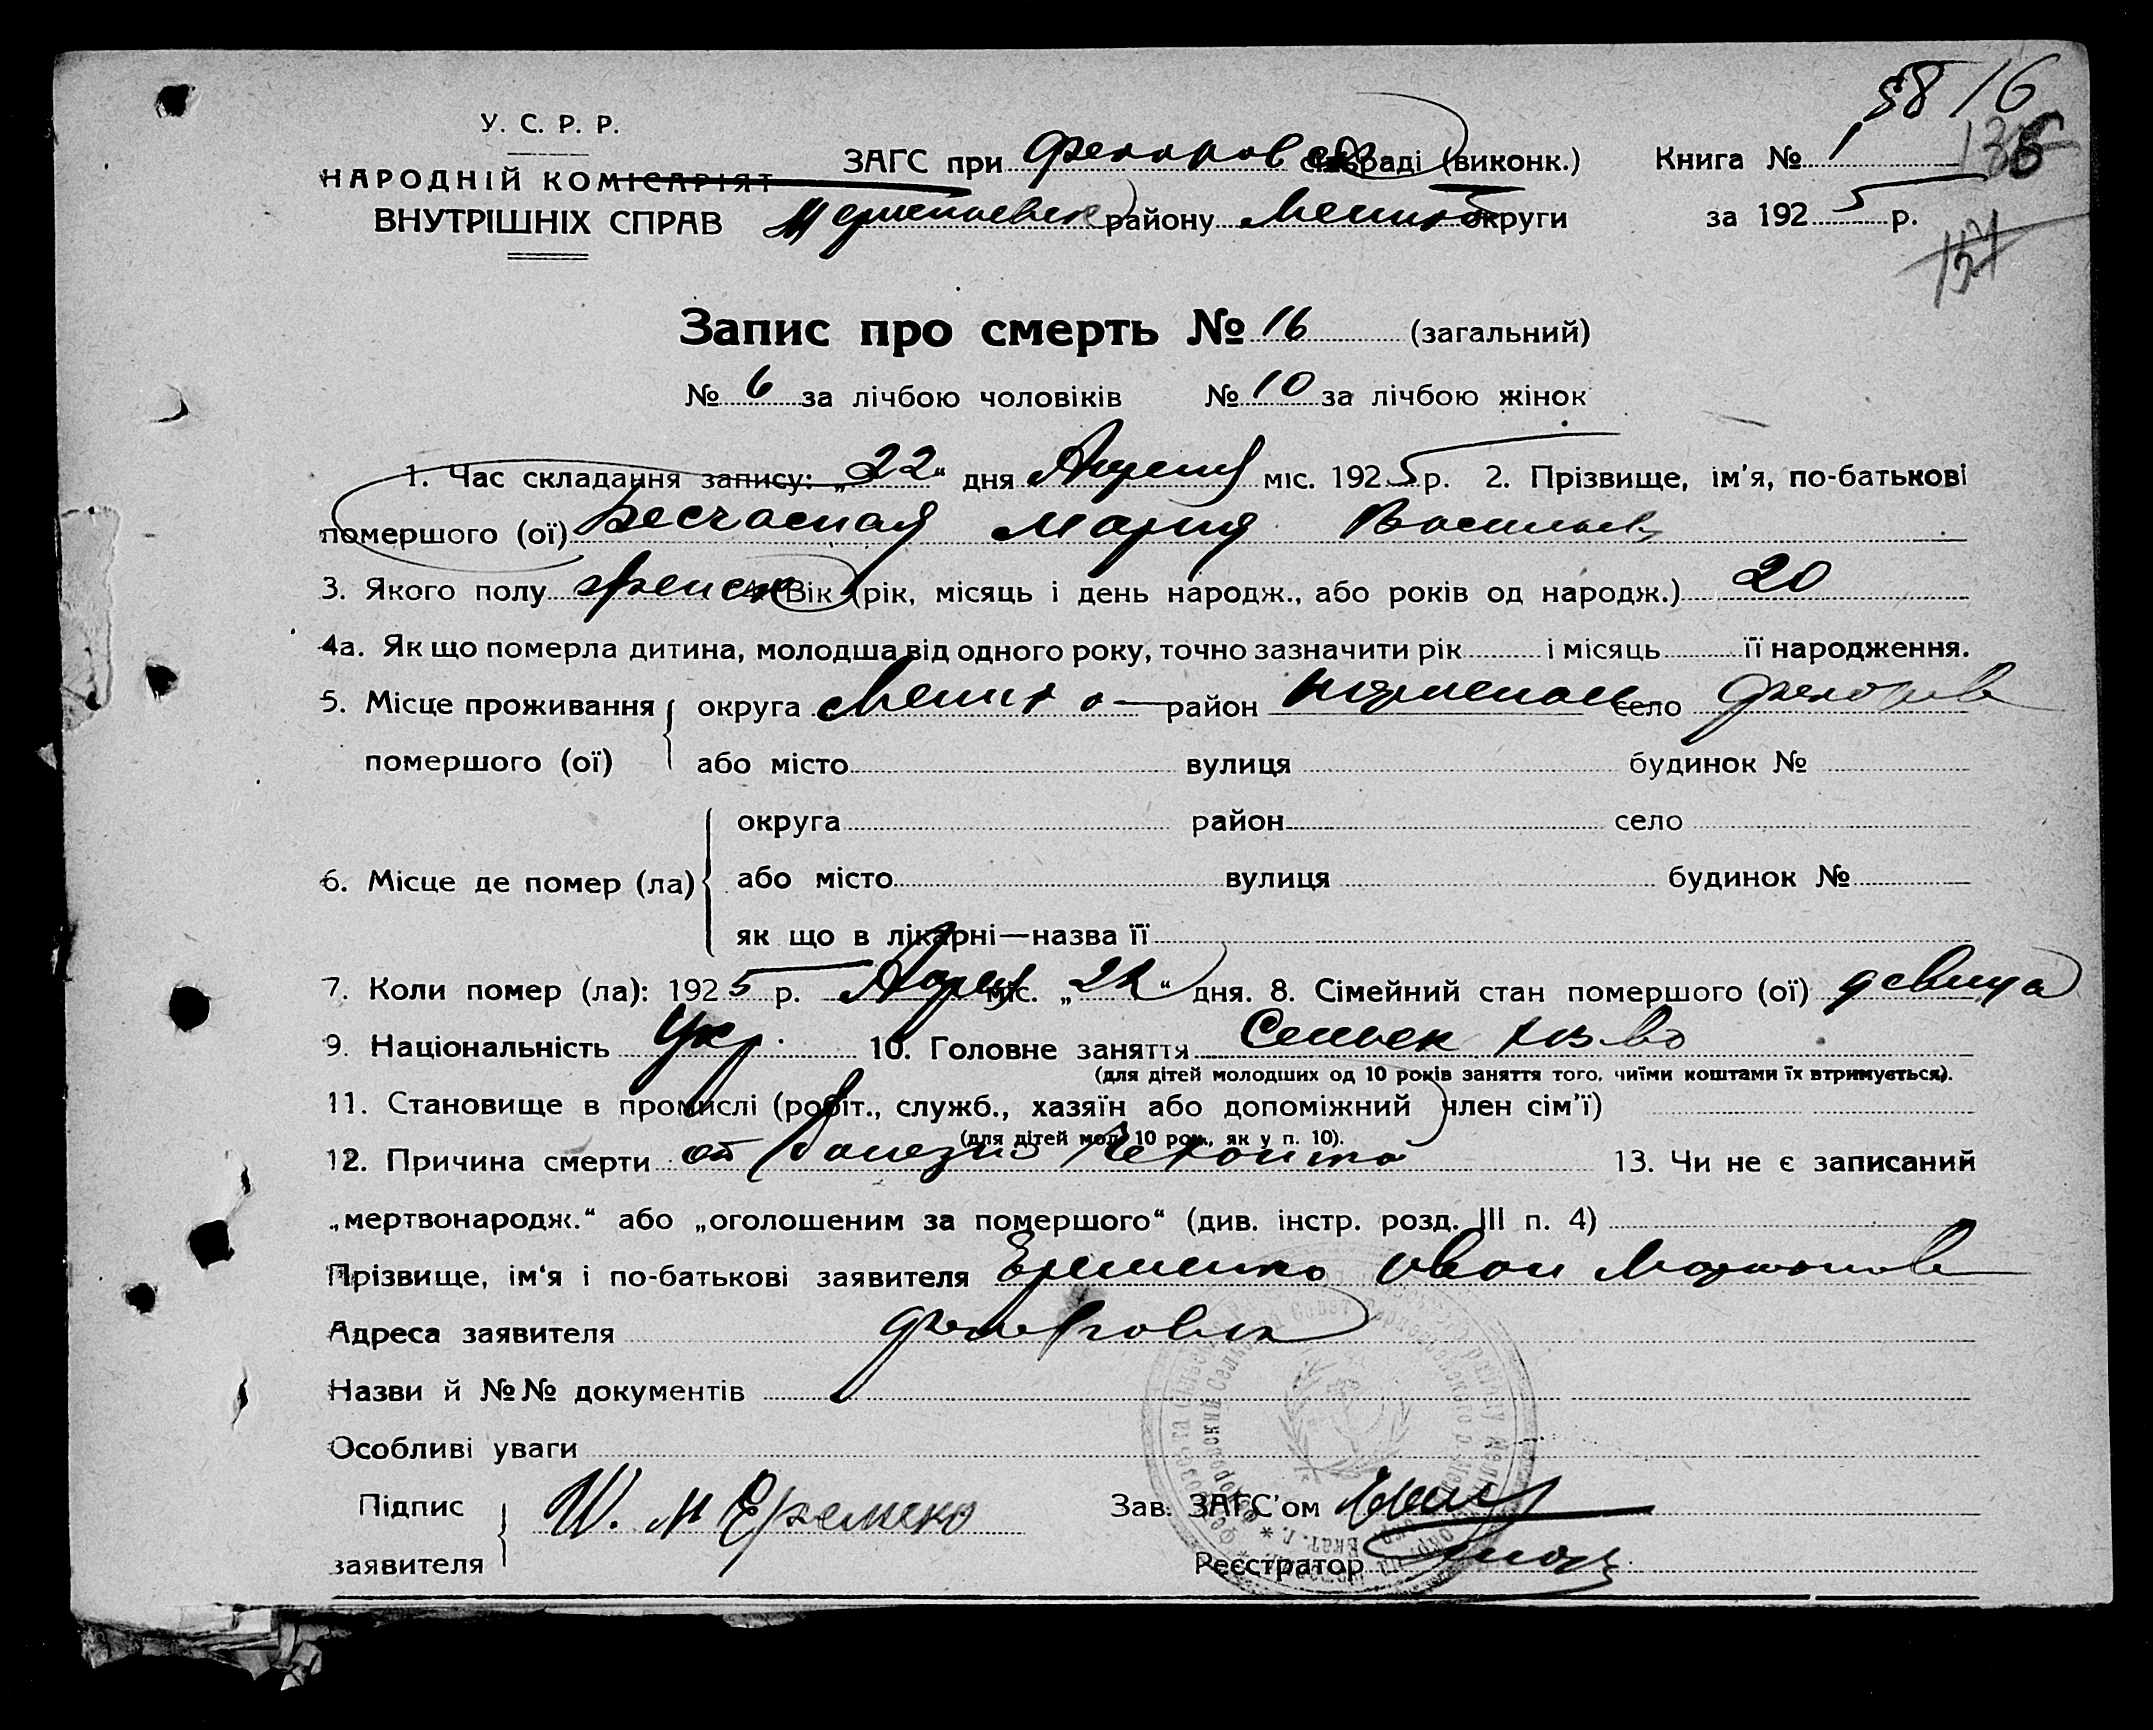 58 16
136
У. С. Р. Р.
НАРОДНІЙ КОМІСАРІЯТ
ВНУТРІШНІХ СПРАВ
ЗАГС при Федоров сільраді (виконк.) Книга № 1
району округи за 1925 р.
Запис про смерть № 16 (загальний)
№ 6 за лічбою чоловіків № 10 за лічбою жінок
1. Час складання запису: „22“ дня Апреля міс. 1925 р. 2. Прізвище, ім'я, по-батькові
помершого (ої) Бесчасная Мария Васильев
3. Якого полу женск 4. Вік (рік, місяць і день народж., або років од народж.) 20
4а. Як що померла дитина, молодша від одного року, точно зазначити рік і місяць її народження.
5. Місце проживання округа район село
помершого (ої) або місто вулиця будинок №
округа район село
6. Місце де помер (ла) або місто вулиця будинок №
як що в лікарні—назва її
7. Коли помер (ла): 1925 р. Апрел міс. „22“ дня. 8. Сімейний стан помершого (ої) девица
9. Національність Укр. 10. Головне заняття Сельск хоз-во
(для дітей молодших од 10 років заняття того, чиїми коштами їх втримується).
11. Становище в промислі (робіт., служб., хазяїн або допоміжний член сім'ї)
(для дітей мол. 10 рок., як у п. 10).
12. Причина смерти от болезни 13. Чи не є записаний
„мертвонародж.“ або „оголошеним за помершого“ (див. інстр. розд. III п. 4)
Прізвище, ім'я і по-батькові заявителя Еременко Иван
Адреса заявителя
Назви й №№ документів
Особливі уваги
Підпис
заявителя
И. М Еременко
Зав. ЗАГС'ом
Реєстратор